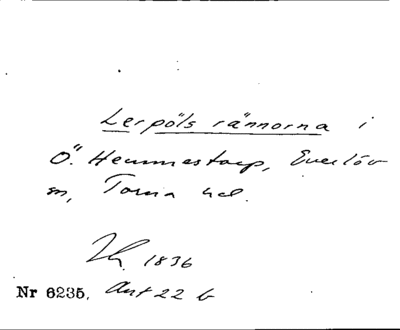 Lerpöls rännorna i
Ö. Hemmestorp, Everlöv
sn, Torna hd.
1836
Nr 6235. Avt 22 b